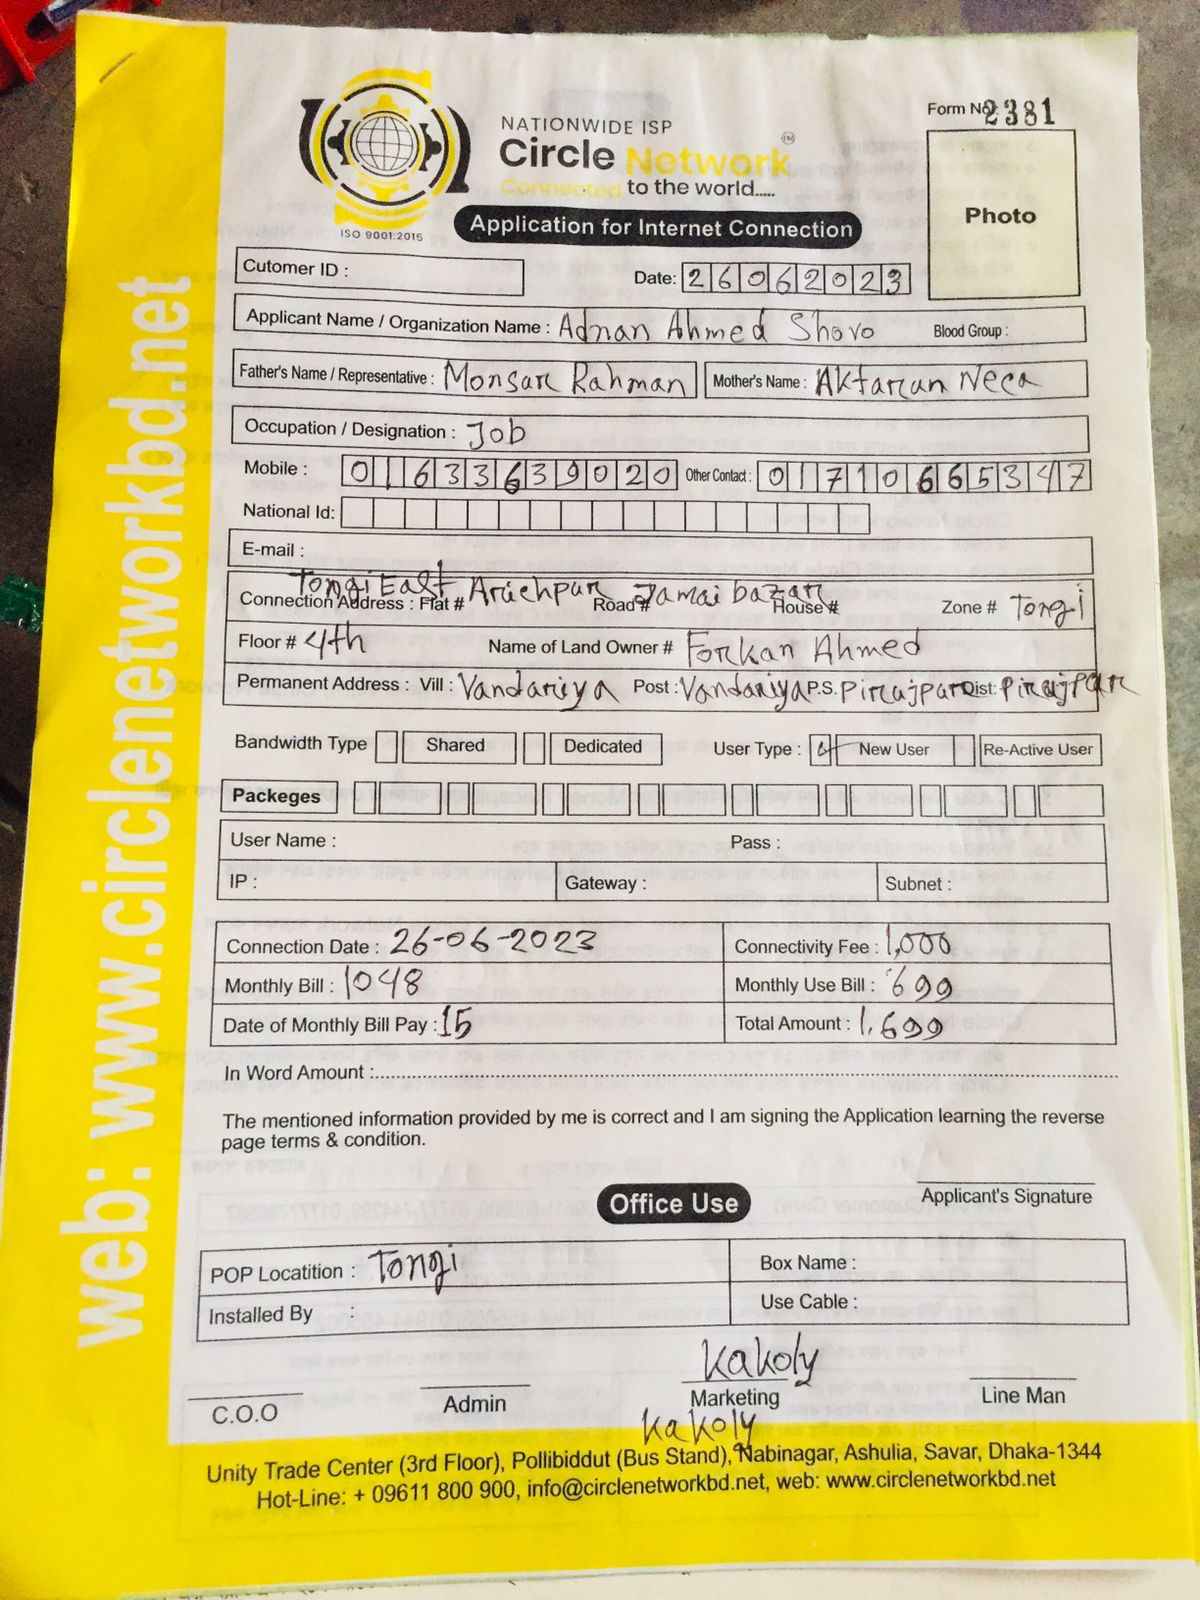 web: www.circlenetworkbd.net
Form No: 2381
NATIONWIDE ISP
Circle Network
Connected to the world.....
ISO 9001:2015
Application for Internet Connection
Photo
Cutomer ID :
Date: 26062023
Applicant Name / Organization Name : Adnan Ahmed Shovo Blood Group :
Father's Name / Representative : Monsar Rahman Mother's Name : Aktarun Neca
Occupation / Designation : Job
Mobile : 01633639020 Other Contact : 01710665347
National Id:
E-mail :
Tongi East Arichpur Jamai bazar
Connection Address : Flat # Road # House # Zone # Tongi
Floor # 4th Name of Land Owner # Forkan Ahmed
Permanent Address : Vill : Vandariya Post : Vandariya P.S. Pirujpur Dist: Pirujpur
Bandwidth Type Shared Dedicated User Type : New User Re-Active User
Packeges
User Name : Pass :
IP : Gateway : Subnet :
Connection Date : 26-06-2023 Connectivity Fee : 1,000
Monthly Bill : 1048 Monthly Use Bill : 699
Date of Monthly Bill Pay : 15 Total Amount : 1,699
In Word Amount :
The mentioned information provided by me is correct and I am signing the Application learning the reverse
page terms & condition.
Applicant's Signature
Office Use
POP Locatition : Tongi Box Name :
Installed By : Use Cable :
Kakoly
C.O.O Admin Marketing Line Man
Kakoly
Unity Trade Center (3rd Floor), Pollibiddut (Bus Stand), Nabinagar, Ashulia, Savar, Dhaka-1344
Hot-Line: + 09611 800 900, info@circlenetworkbd.net, web: www.circlenetworkbd.net